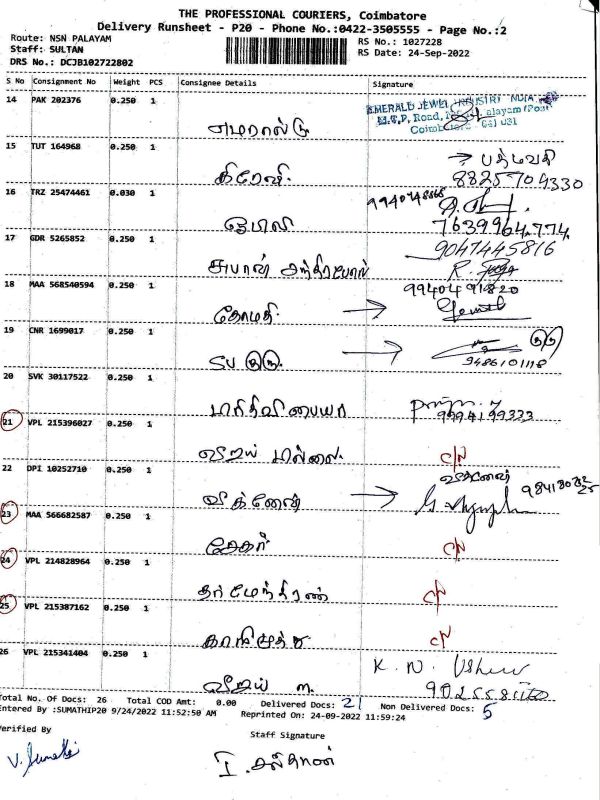 THE PROFESSIONAL COURIERS, Coimbatore
Delivery Runsheet - P20 - Phone No.:0422-3505555 - Page No.:2
Route: NSN PALAYAM
Staff: SULTAN
DRS No.: DCJB102722802
RS No.: 1027228
RS Date: 24-Sep-2022
S No Consignment No Weight PCS Consignee Details Signature
14 PAK 202376 0.250 1
EMERALD JEWEL INDUSTRY INDIA
M.T.P. Road,
Coimbatore 641 031
எமரால்டு
15 TUT 164968 0.250 1
→ பத்மவதி
கிரேவி. 8825704330
16 TRZ 25474461 0.030 1
ஜெயலி 7639964774
17 GDR 5265852 0.250 1 9047445816
சுபாஷ் சந்திரபோஸ்
18 MAA 568540594 0.250 1 9940491820
கோமதி →
19 CNR 1699017 0.250 1
குரு
SU குரு. → 9486101118
20 SVK 30117522 0.250 1
9994199333
21 VPL 215396027 0.250 1
விஜய் மல்லை. C/N
22 DPI 10252710 0.250 1
விக்னேஷ்
விக்னேஷ் →
23 MAA 566682587 0.250 1
சேகர் C/N
24 VPL 214828964 0.250 1
தர்மேந்திரன் C/N
25 VPL 215387162 0.250 1
காளிமுத்து C/N
26 VPL 215341404 0.250 1
விஜய் m.
Total No. Of Docs: 26 Total COD Amt: 0.00 Delivered Docs: 21 Non Delivered Docs: 5
Entered By :SUMATHIP20 9/24/2022 11:52:50 AM Reprinted On: 24-09-2022 11:59:24
Verified By
Staff Signature
V. Sumathi
I. சுல்தான்